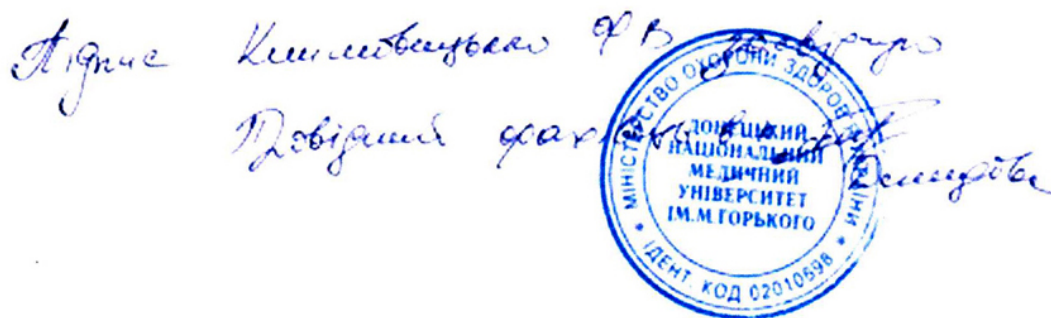 Підпис Климовицького ФВ засвідчую
Провідний фахівець
МІНІСТЕРСТВО ОХОРОНИ ЗДОРОВ'Я УКРАЇНИ
ДОНЕЦЬКИЙ
НАЦІОНАЛЬНИЙ
МЕДИЧНИЙ
УНІВЕРСИТЕТ
ІМ.М.ГОРЬКОГО
* ІДЕНТ. КОД 02010698 *